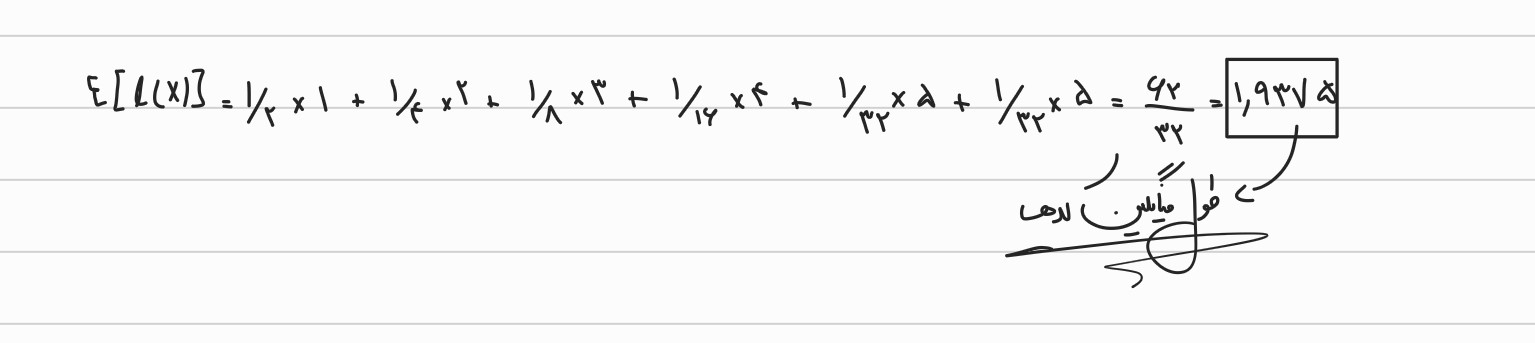 E[l(X)] = ۱/۲ × ۱ + ۱/۴ × ۲ + ۱/۸ × ۳ + ۱/۱۶ × ۴ + ۱/۳۲ × ۵ + ۱/۳۲ × ۵ = ۶۲/۳۲ = ۱,۹۳۷۵
طول میانگین کدها